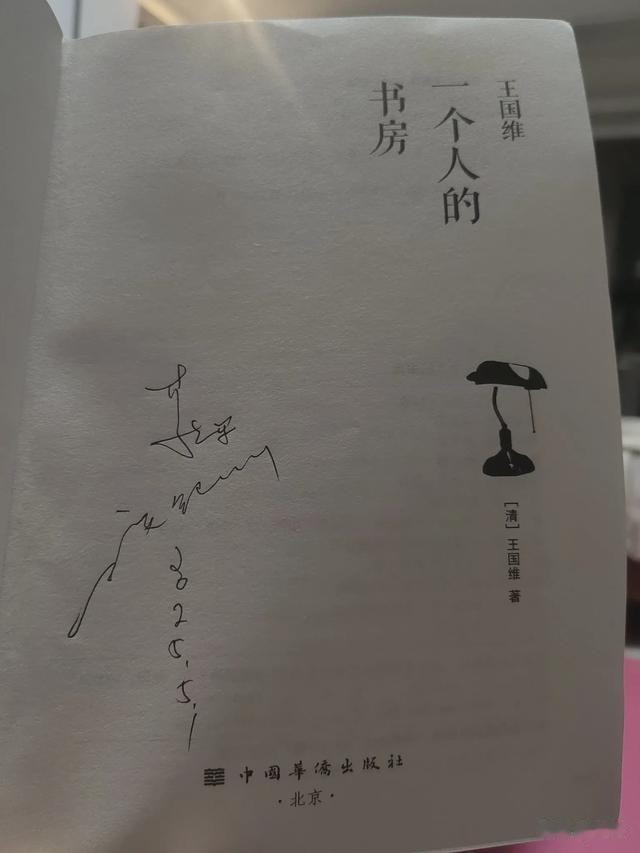 王国维
一个人的
书房
[清] 王国维 著
2025.5.1
中国华侨出版社
·北京·